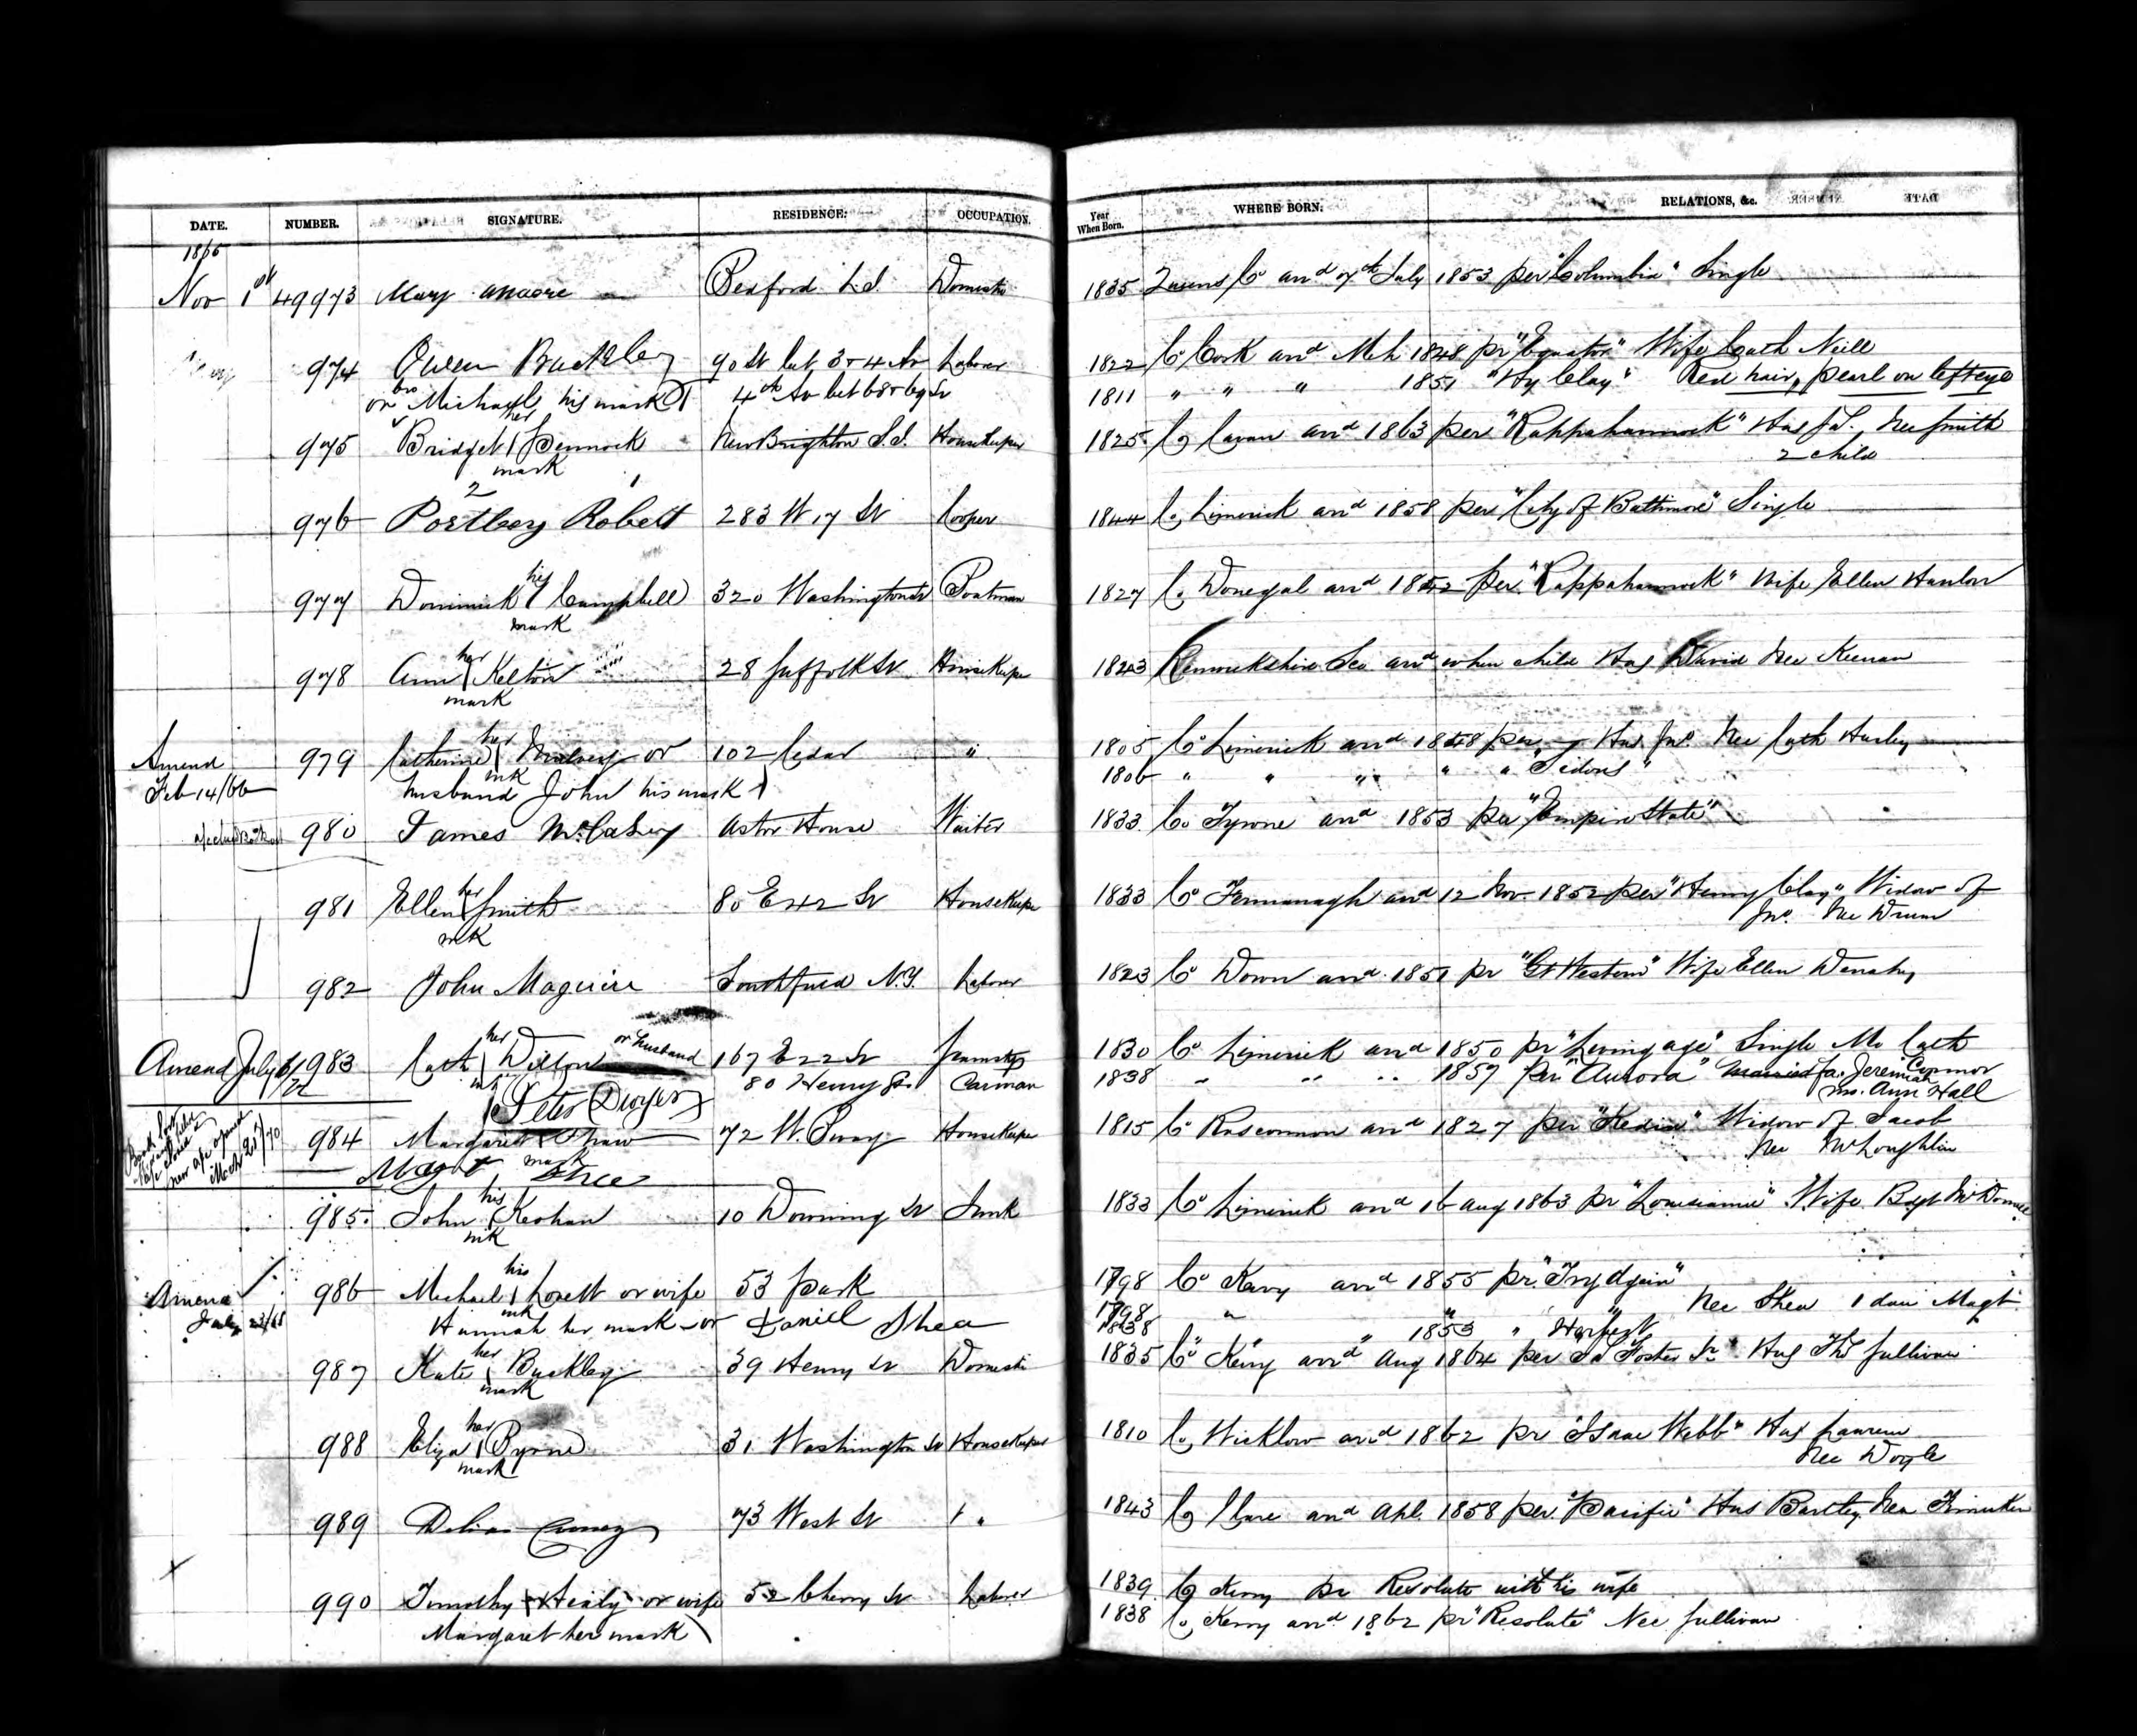 DATE. NUMBER. SIGNATURE. RESIDENCE: OCCUPATION. Year When Born. WHERE BORN. RELATIONS, &c.
1865
Nov 1st 49973 Mary Moore Bedford L.I. Domestic 1835 Queens Co arrd 7th July 1853 per "Columbia" Single
974 Owen Buckley 90 St bet 3 & 4 Av Laborer 1822 Co Cork arrd Mch 1848 pr "Equator" Wife Cath Neill
or bro Michael his mark 4th Av bet 68 & 69 St 1811 " " " 1851 "Hy Clay" Red hair, pearl on left eye
975 Bridget her Pennock New Brighton S.I. HouseKeeper 1825 Co Cavan arrd 1863 per "Rappahannock" Hus Ja. Nee Smith
mark 2 child
2
976 Portley Robert 283 W 17 St Cooper 1844 Co Limerick arrd 1858 per "City of Baltimore" Single
977 Dominick his Campbell 320 Washington St Boatman 1827 Co Donegal arrd 1842 per "Rappahannock" Wife Ellen Hanlon
mark
978 Ann her Kelton 28 Suffolk St HouseKeeper 1823 Renwickshire Sco arrd when child Hus David Nee Keenan
mark
Amend 979 Catherine her or 102 Cedar " 1805 Co Limerick arrd 1848 per Hus Jno. Nee Cath Hurley
Feb 14/66 mk husband John his mark 1806 " " " " " "Sidons"
980 James McCaSey Astor House Waiter 1833 Co Tyrone arrd 1853 per "Empire State"
981 Ellen her Smith 80 E 42 St HouseKeeper 1833 Co Fermanagh arrd 12 Nov. 1852 per "Henry Clay" Widow of
mk Jno. Nee Drum
982 John Maguire Southfield N.Y. Laborer 1823 Co Down arrd 1851 pr "Gt Western" Wife Ellen
Amend July 6/72 983 Cath her Dillon or husband 167 E 22 St Seamstress 1830 Co Limerick arrd 1850 pr "Living age" Single Mo Cath
mk Peter Dwyer 80 Henry St. Carman 1838 " " " 1857 per "Aurora" married fa. Jeremiah Connor
mo. Ann Hall
984 Margaret Shaw 72 W. Bway HouseKeeper 1815 Co Roscommon arrd 1827 per Widow of Jacob
new a/c opened Mch 25/70 mark Nee McLoughlin
Magt Shee
985 John his Keohan 10 Downing St Junk 1833 Co Limerick arrd 16 Aug 1863 pr "Louisiana" Wife Bdgt McDonnell
mk
Amend 986 Michael his Lovett or wife 53 Park 1798 Co Kerry arrd 1855 pr. "Try again"
July 23/68 mk Hannah her mark or Daniel Shea 1798 " " " Nee Shea 1 dau Magt
1838 " " 1853 " Harvest
987 Kate her Buckley 39 Henry St Domestic 1835 Co Kerry arrd Aug 1864 per "Ja Foster Jr" Hus Thos Sullivan
mark
988 Eliza her Byrne 31 Washington St HouseKeeper 1810 Co Wicklow arrd 1862 pr "Isaac Webb" Hus Lawrence
mark Nee Doyle
989 Delia 73 West St " 1843 Co Clare arrd Apl. 1858 per "Pacific" Hus Bartley Nee
990 Timothy Healy or wife 52 Cherry St Laborer 1839 Co Kerry pr Resolute with his wife
Margaret her mark 1838 Co Kerry arrd 1862 pr "Resolute" Nee Sullivan